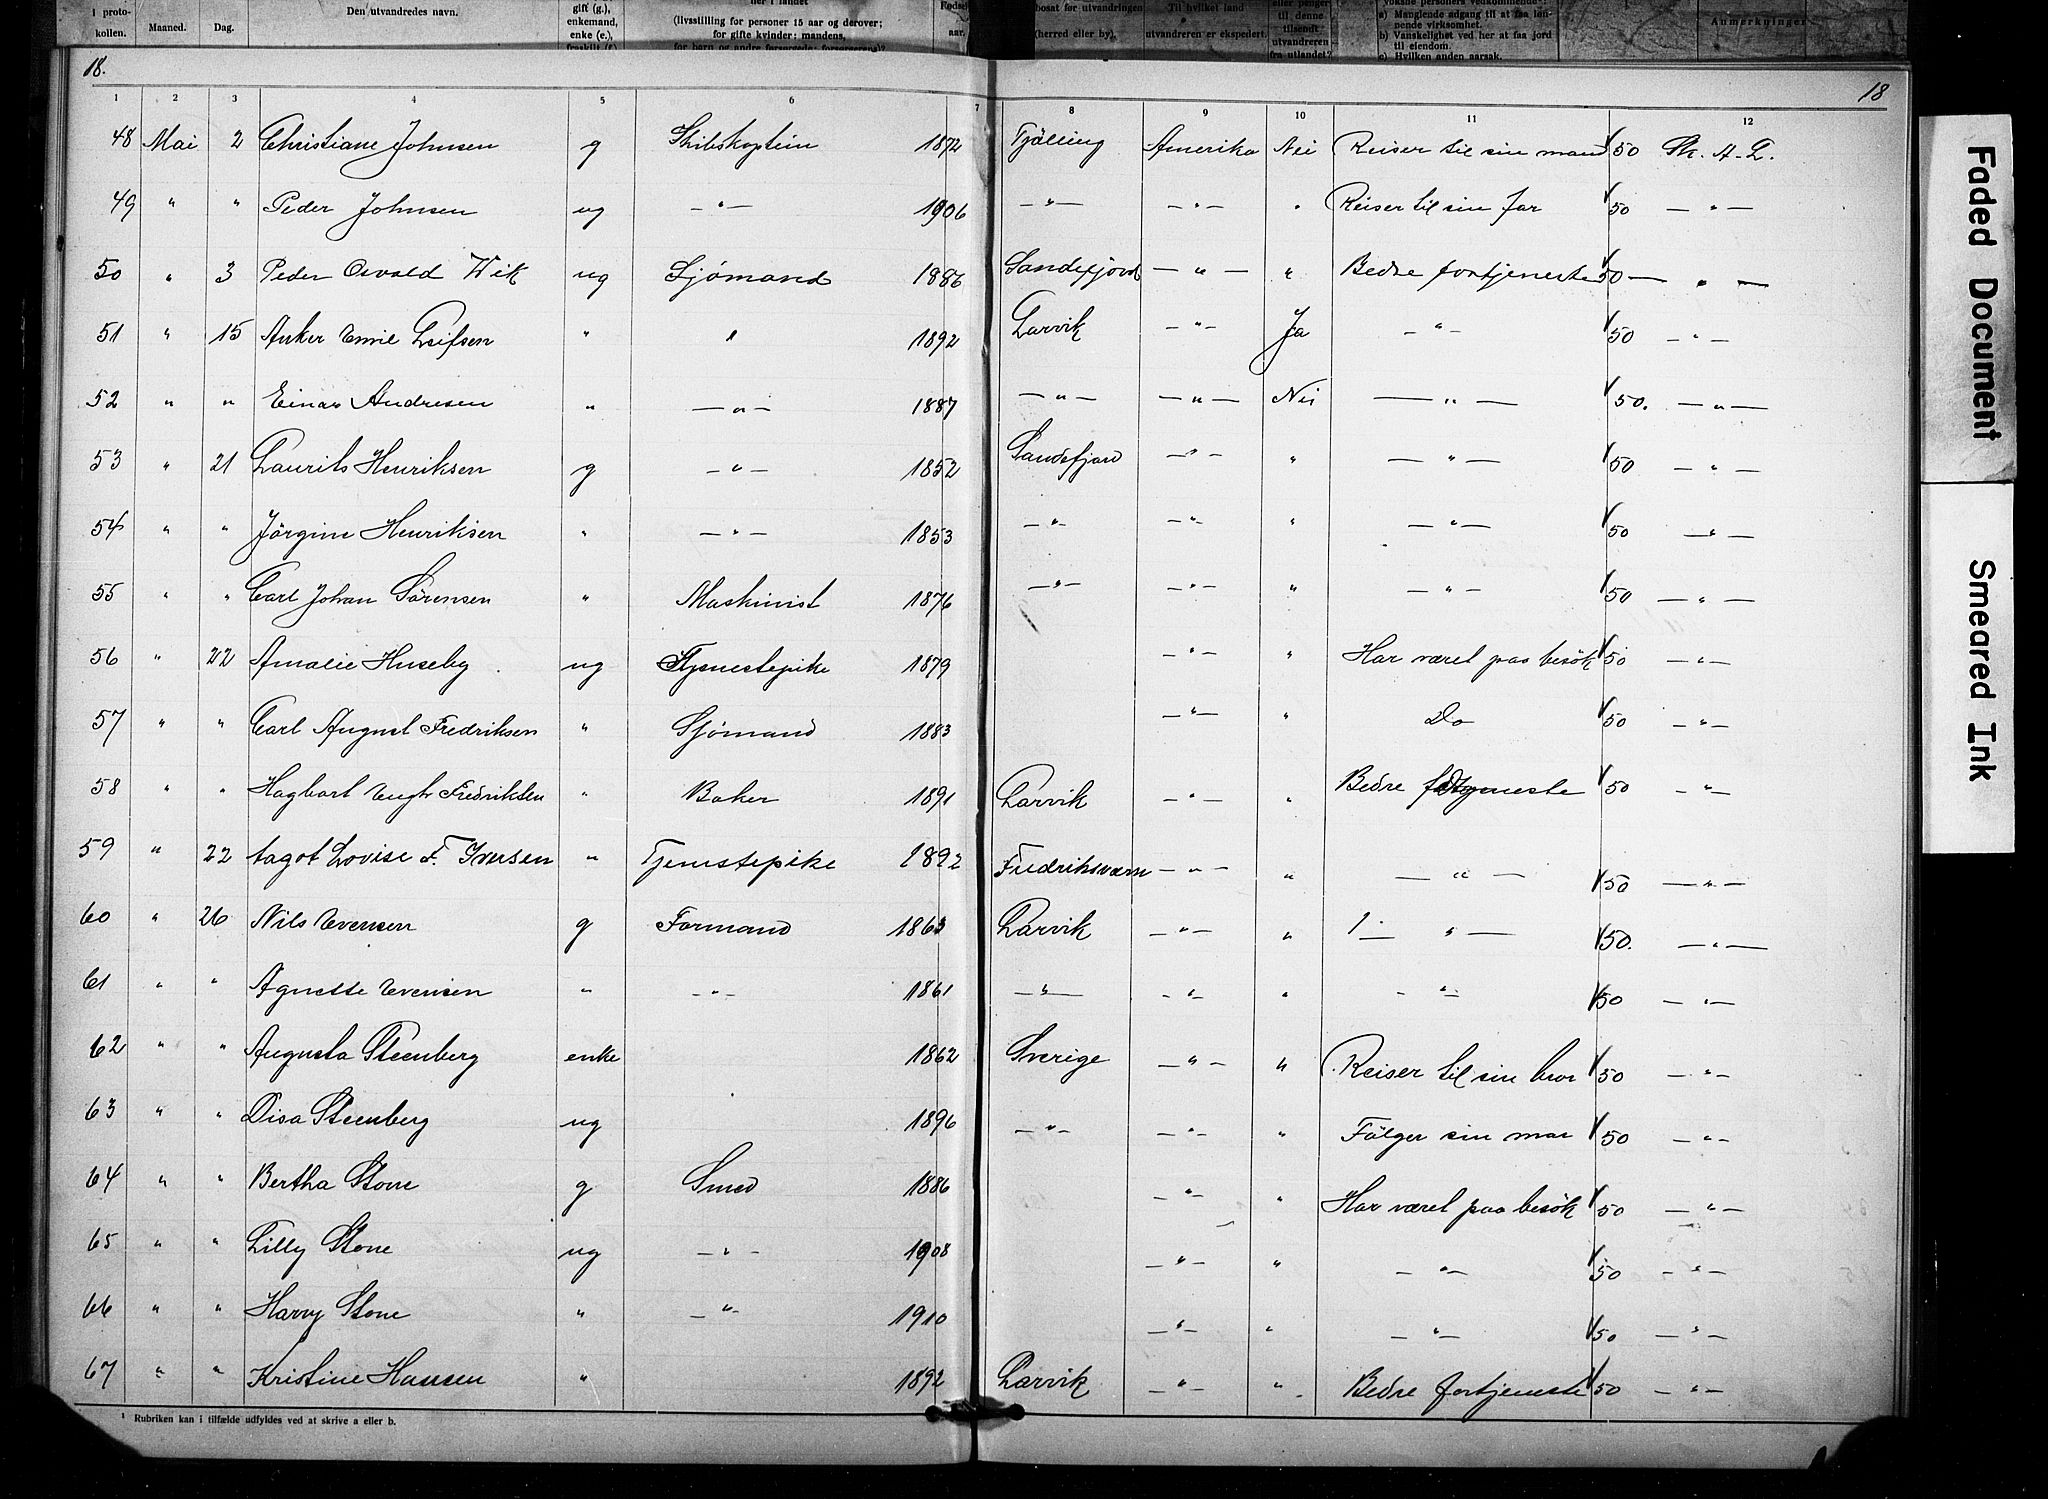 i protokollen. Maaned. Dag. Den utvandredes navn. gift (g.), enkemand, enke (e.), (livsstilling for personer 15 aar og derover; for gifte kvinder: mandens, aar. bosat før utvandringen (herred eller by). Til hvilket land utvandreren er ekspedert. eller penger til denne tilsendt utvandreren fra utlandet? a) Manglende adgang til at faa lønnende virksomhet. b) Vanskelighet ved her at faa jord til eiendom. c) Hvilken anden aarsak. Anmerkninger
18. 18
1 2 3 4 5 6 7 8 9 10 11 12
48 Mai 2 Christiane Johnsen g Skibskaptein 1872 Tjølling Amerika Nei Reiser til sin mand 50 Sk. A. L.
49 " " Peder Johnsen ug —"— 1906 —"— —"— " Reiser til sin far 50 —"—
50 " 3 Peder Osvald Wik ug Sjømand 1886 Sandefjord —"— " Bedre fortjeneste 50 —"—
51 " 15 Anker Emil Leifsen " " 1892 Larvik —"— Ja —"— 50 —"—
52 " " Einar Andresen " —"— 1887 —"— —"— Nei —"— 50. —"—
53 " 21 Laurits Henriksen g —"— 1852 Sandefjord —"— " —"— 50 —"—
54 " " Jørgine Henriksen " —"— 1853 —"— —"— " —"— 50 —"—
55 " " Carl Johan Sørensen " Maskinist 1876 —"— —"— " —"— 50 —"—
56 " 22 Amalie Huseby ug Tjenestepike 1879 —"— " Har været paa besøk 50 —"—
57 " " Carl August Fredriksen " Sjømand 1883 —"— " Do 50 —"—
58 " " Hagbart Fredriksen " Baker 1891 Larvik —"— " Bedre fortjeneste 50 —"—
59 " 22 Aagot Lovise F. Iversen " Tjenestepike 1892 Fredriksværn —"— " —"— 50 —"—
60 " 26 Nils Evensen g Formand 1863 Larvik —"— " —"— 50. —"—
61 " " Agnette Evensen " —"— 1861 —"— —"— " —"— 50 —"—
62 " " Augusta Steenberg enke 1862 Sverige —"— " Reiser til sin bror 50 —"—
63 " " Disa Steenberg ug 1896 —"— —"— " Følger sin mor 50 —"—
64 " " Bertha Stone g Smed 1886 —"— " Har været paa besøk 50 —"—
65 " " Lilly Stone ug —"— 1908 —"— " —"— 50 —"—
66 " " Harry Stone " —"— 1910 —"— " —"— 50 —"—
67 " " Kristine Hansen " 1892 Larvik —"— " Bedre fortjeneste 50 —"—
¹ Rubriken kan i tilfælde udfyldes ved at skrive a eller b.
Faded Document
Smeared Ink